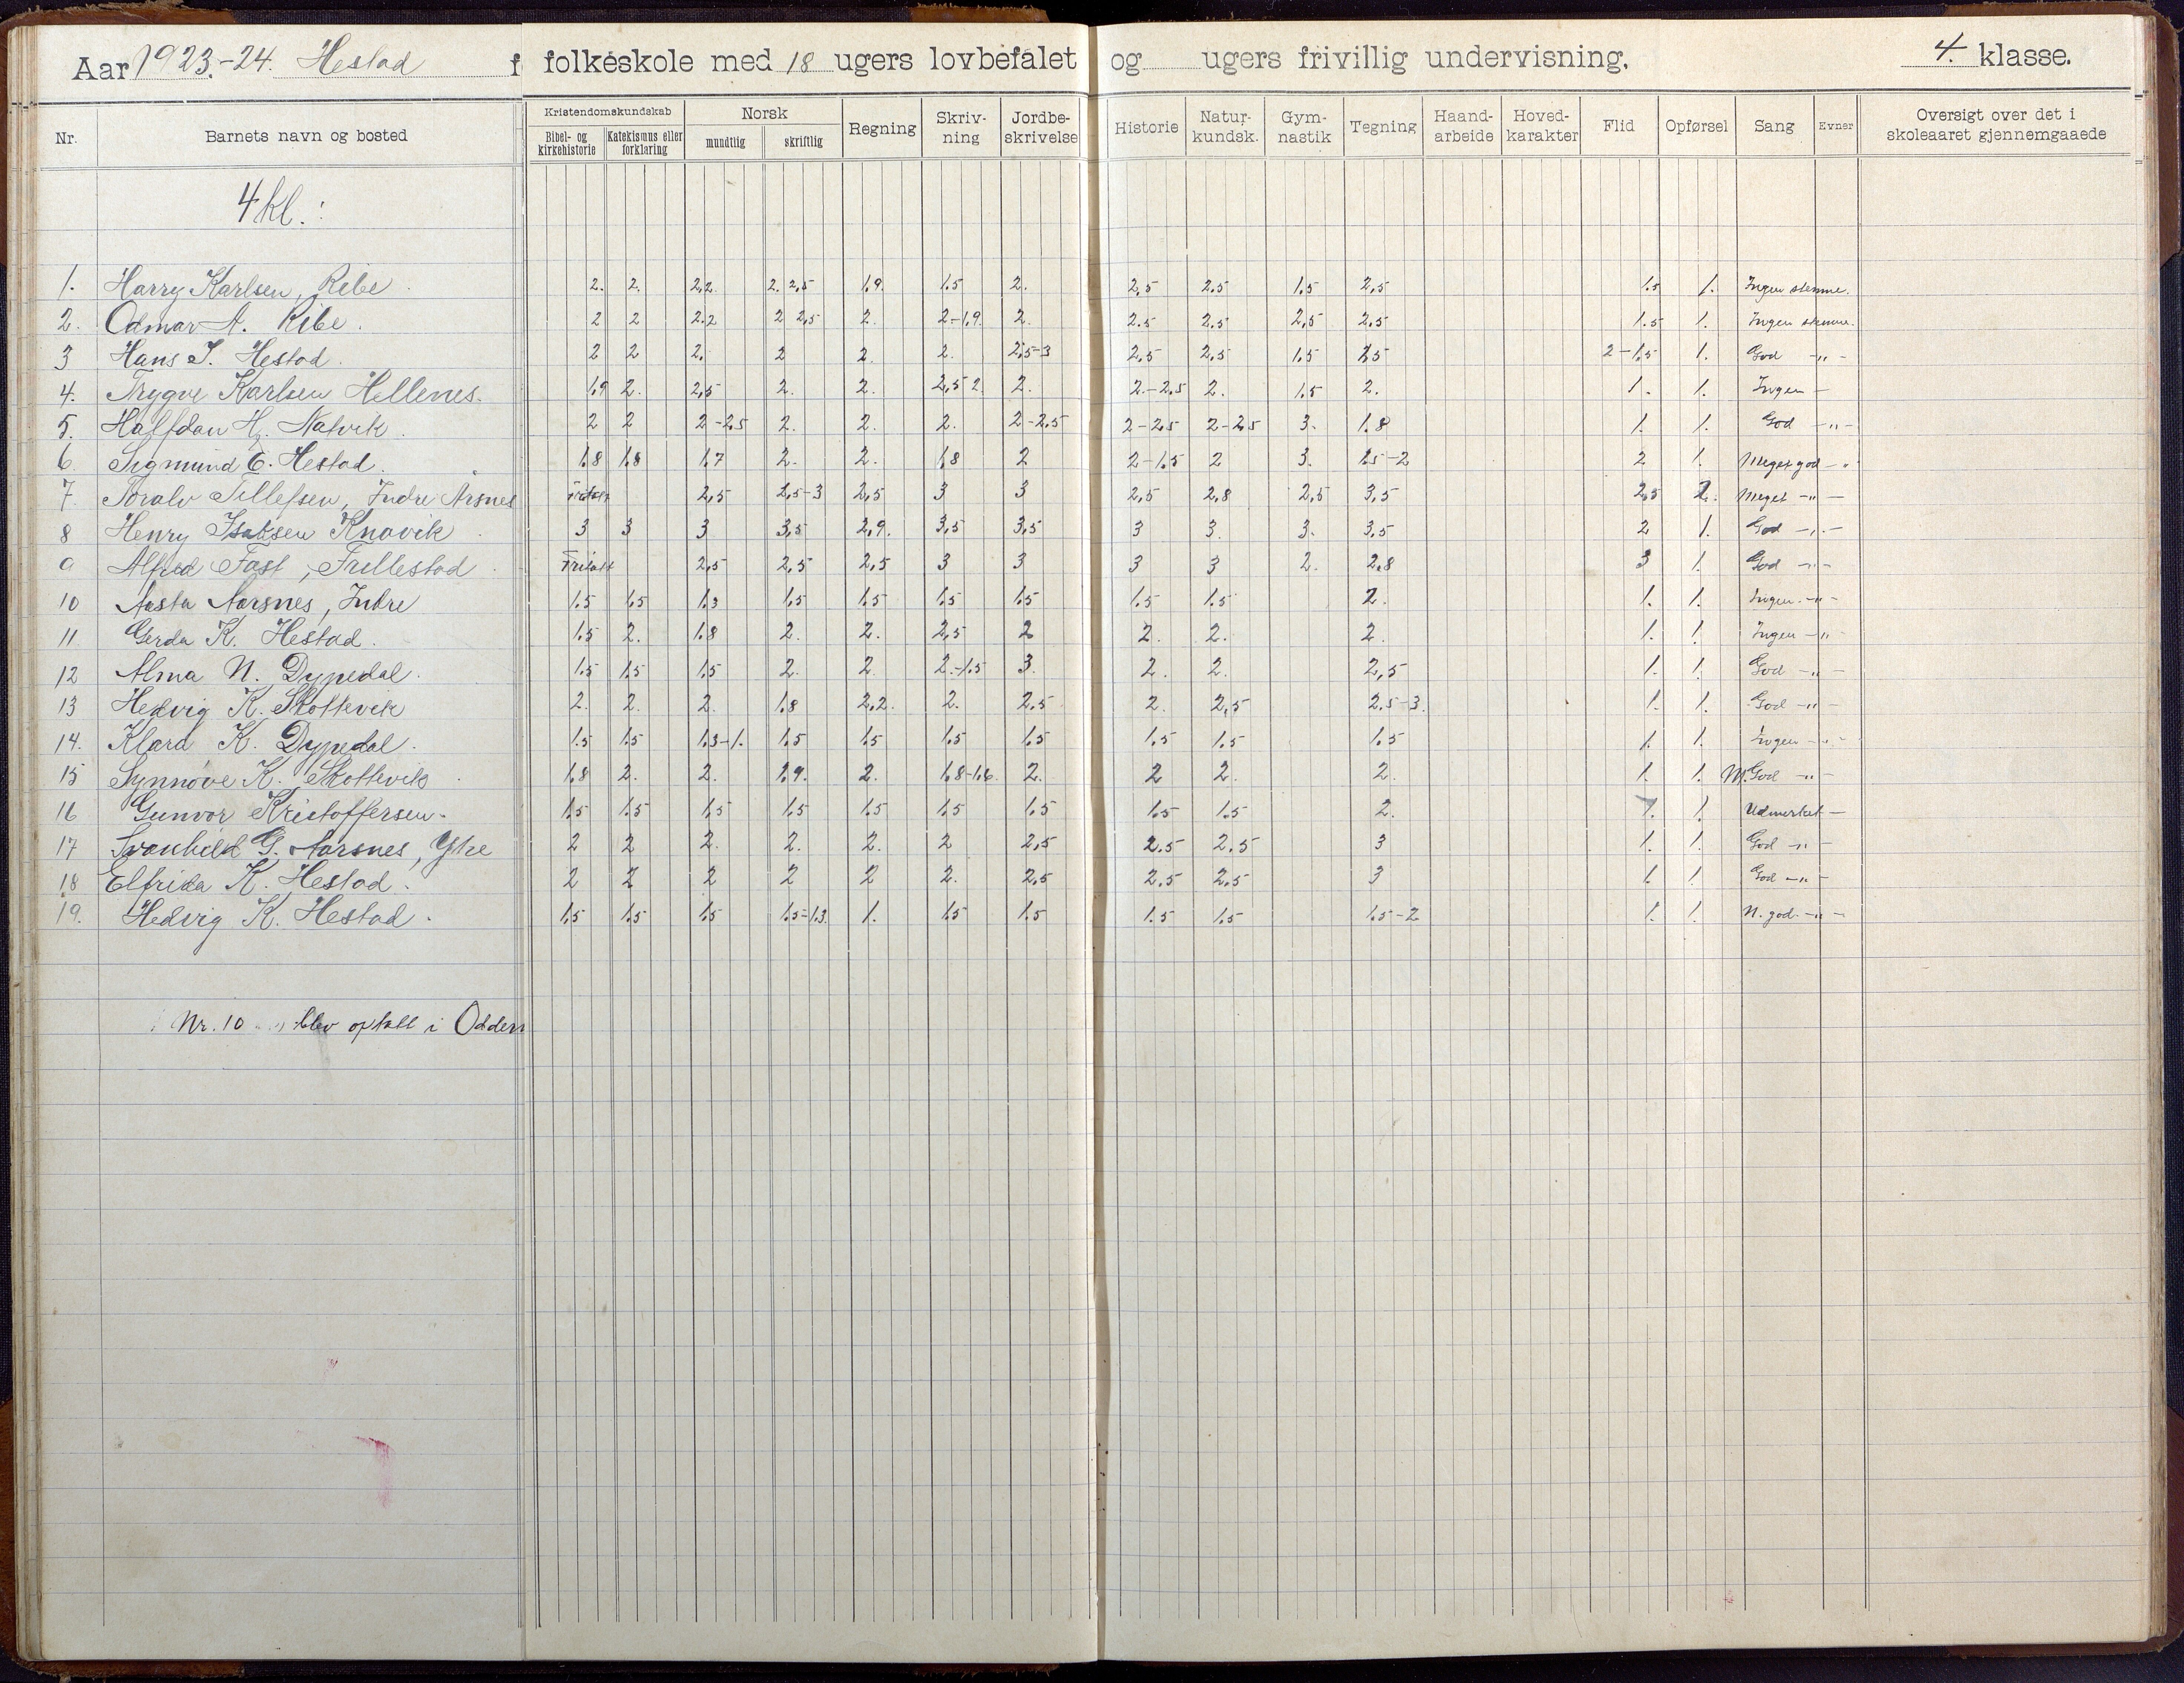 Aar 1923.-24. Hestad f folkeskole med 18 ugers lovbefalet og ugers frivillig undervisning. 4. klasse.
Nr. Barnets navn og bosted Kristendomskundskab Bibel- og kirkehistorie Katekismus eller forklaring Norsk mundtlig skriftlig Regning Skriv-ning Jordbe-skrivelse Historie Natur-kundsk. Gym-nastik Tegning Haand-arbeide Hoved-karakter Flid Opførsel Sang Evner Oversigt over det i skoleaaret gjennemgaaede
4 kl.:
1. Harry Karlsen, Ribe. 2. 2. 2,2. 2. 2,5 1,9. 1.5 2. 2,5 2.5 1.5 2,5 1.5 1. Ingen stemme.
2. Odmar A. Ribe. 2 2 2.2 2 2,5 2. 2-1,9. 2. 2.5 2.5 2,5 2.5 1.5 1. Ingen stemme.
3 Hans J. Hestad. 2 2 2. 2 2. 2. 2,5-3 2,5 2,5 1.5 2,5 2-1,5 1. God -"-
4. Trygve Karlsen Hellenes. 1,9 2. 2,5 2. 2. 2,5 2. 2. 2-2,5 2. 1.5 2. 1. 1. Ingen -
5. Halfdan H. Natvik. 2 2 2-2,5 2. 2. 2. 2-2,5 2-2,5 2-2,5 3. 1.8 1. 1. God -"-
6. Sigmund E. Hestad. 1,8 1,8 1,7 2. 2. 1,8 2 2-1,5 2 3. 1.5-2 2 1. Meget god -"
7. Toralv Tellefsen, Indre Arsnes Fritatt 2,5 2,5-3 2,5 3 3 2,5 2,8 2,5 3,5 2,5 2. Meget -"-
8 Henry Isaksen Knavik. 3 3 3 3,5 2,9. 3,5 3,5 3 3. 3. 3,5 2 1. God -"-
9 Alfred Fast, Trellestad. Fritatt 2,5 2,5 2,5 3 3 3 3 2. 2,8 3 1. God -"-
10 Aasta Aarsnes, Indre 1.5 1,5 1.3 1,5 1.5 1.5 1.5 1.5 1.5 2. 1. 1. Ingen -"-
11 Gerda K. Hestad. 1.5 2. 1.8 2. 2. 2,5 2 2. 2. 2. 1. 1. Ingen -"-
12 Alma N. Dypedal. 1.5 1.5 1.5 2. 2 2-1.5 3. 2. 2. 2,5 1. 1. God -"-
13 Hedvig K. Skottevik 2. 2. 2. 1.8 2,2. 2. 2,5 2. 2,5 2.5-3. 1. 1. God -"-
14. Klara K. Dypedal. 1.5 1.5 1.3-1. 1.5 1.5 1.5 1.5 1.5 1.5 1.5 1. 1. Ingen -"-
15 Synnøve K. Skottevik. 1,8 2. 2. 1.9. 2. 1.8-1.6. 2. 2 2. 2. 1. 1. M. God -"-
16 Gunvor Kristoffersen. 1.5 1.5 1.5 1.5 1.5 1.5 1.5 1.5 1.5 2. 1. 1. Udmerket -
17 Svanhild G. Aarsnes, Ytre 2 2 2. 2. 2. 2 2,5 2.5 2.5 3 1. 1. God -"-
18 Elfrida K. Hestad. 2 2 2 2 2 2. 2,5 2.5 2.5 3 1. 1. God -"-
19. Hedvig K. Hestad. 1,5 1.5 1.5 1.5-1.3. 1. 1.5 1.5 1.5 1.5 1.5-2 1. 1. N. god -"-
Nr. 10 blev optatt i Oddern